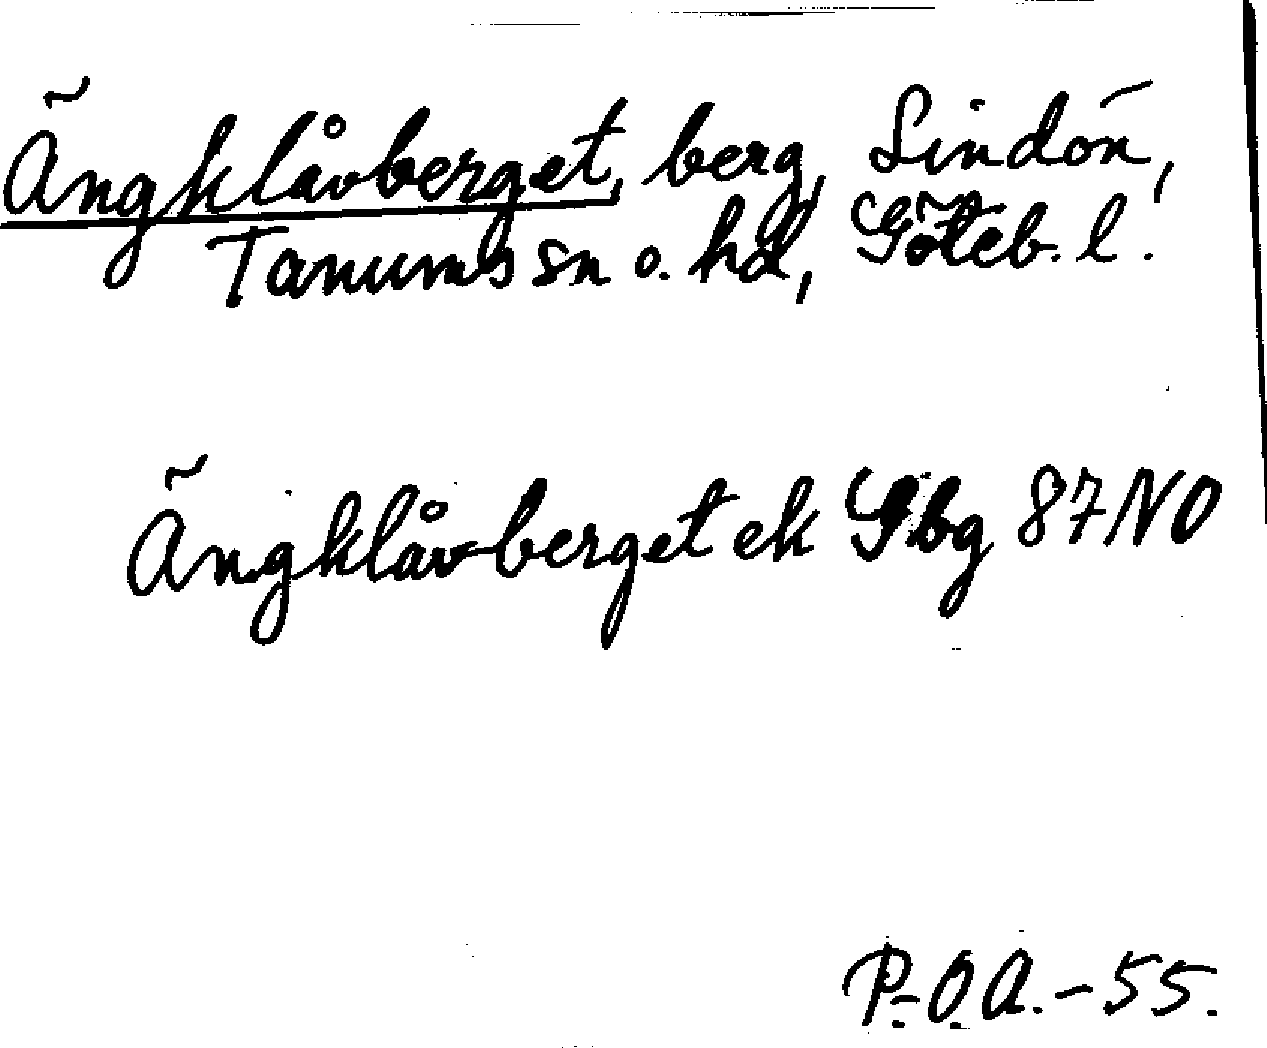 Ängklåvberget, berg, Lindön,
Tanums sn o. hd, Göteb. l.
Ängklåvberget ek Gbg 87 NO
P.-O.A.-55.